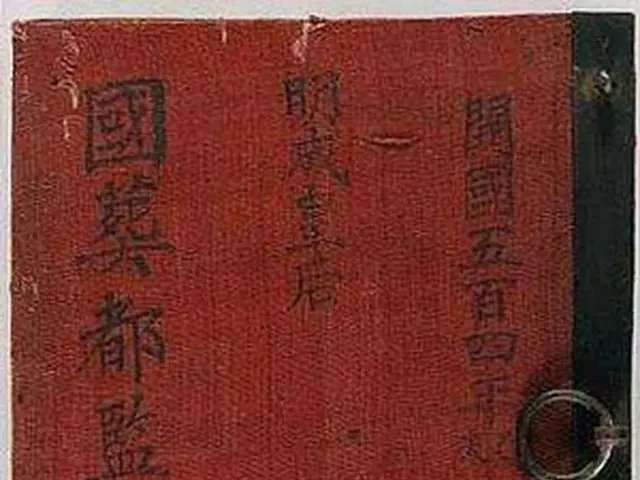 開國五百四年
明成皇后
國葬都監